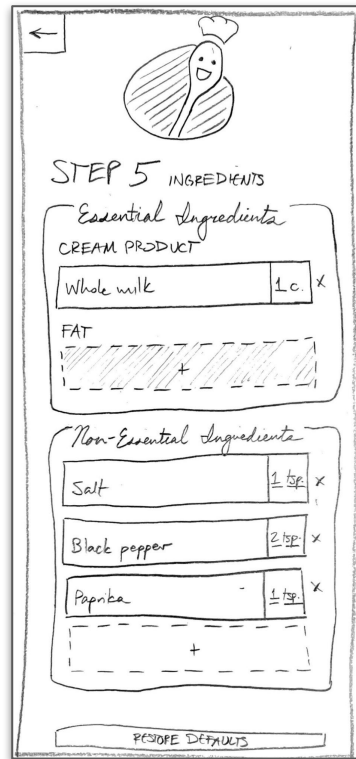 STEP 5 INGREDIENTS
Essential Ingredients
CREAM PRODUCT
Whole milk 1 c. x
FAT
+
Non-Essential Ingredients
Salt 1 tsp. x
Black pepper 2 tsp. x
Paprika 1 tsp. x
+
RESTORE DEFAULTS